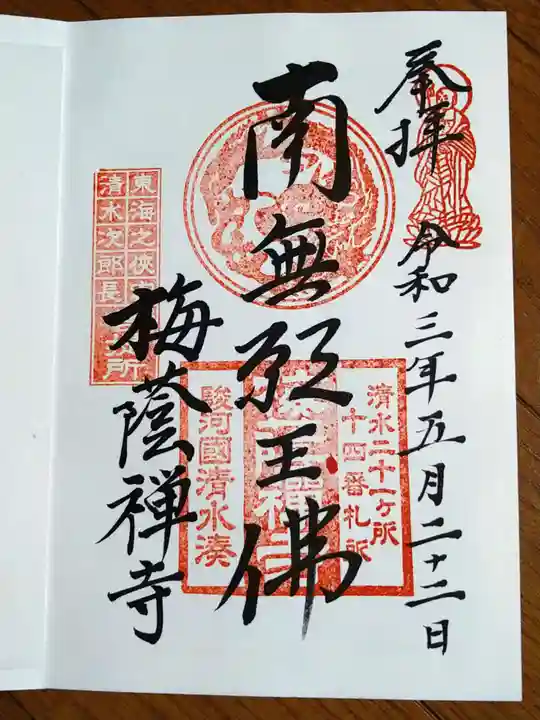 奉拝
令和三年五月二十二日
南無願王佛
清水二十一ヶ所
十四番札所
駿河國清水湊
梅蔭禅寺
東海之侠
清水次郎長
所